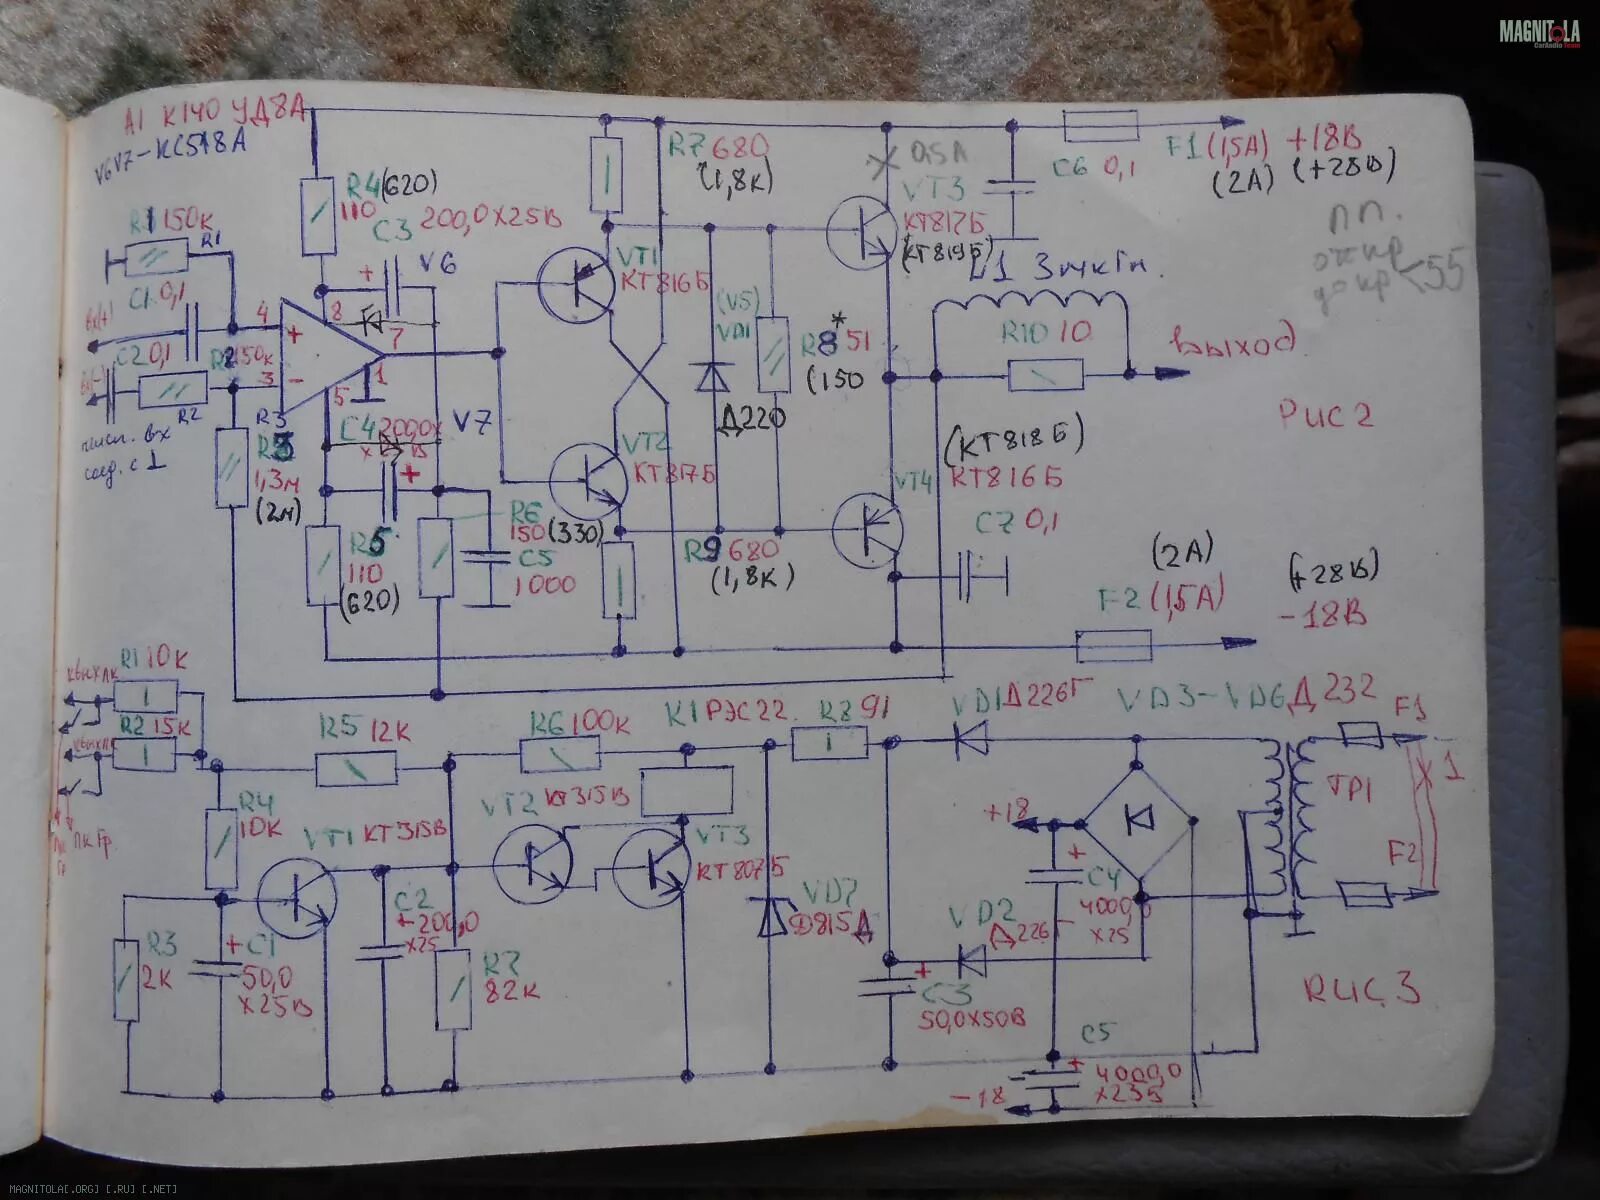 MAGNITOLA
CarAudio Team
A1 К140 УД8А
V6V7-КС518А
R1 150к
R1
C1 0,1
C2 0,1
R2 150к
R2
вх(+)
вх(-)
соед. с 1
4
3
8
7
5
1
+
-
R4 (620)
110
C3 200,0х25В
V6
V7
C4 200,0х
R3
R3
1,3м
(2м)
R5
110
(620)
R6
150 (330)
C5
1000
VT1
КТ816Б
VT2
КТ817Б
R7 680
(1,8к)
(V5)
VD1
Д220
R8* 51
(150
R9 680
(1,8к)
0,5А
VT3
КТ817Б
(КТ819Б)
C6 0,1
F1 (1,5А) +18В
(2А) (+28В)
L1 3мкГн.
R10 10
Выход
Рис 2
(КТ818Б)
VT4 КТ816Б
C7 0,1
(2А)
F2 (1,5А)
(+28В)
-18В
пп.
<55
R1 10к
R2 15к
R5 12к
R6 100к
К1 РЭС22
R8 91
VD1 Д226Г
VD3-VD6 Д232
F1
F2
ТР1
Х1
R4
10к
VT1 КТ315В
VT2 КТ315В
VT3
КТ807Б
C2
+200,0
х25
R3
2К
+ C1
50,0
х25В
R7
82к
VD7
Д815Д
VD2
Д226Г
+18
+
C4
4000,0
х25
+
C3
50,0х50В
C5
+
4000,0
х25Б
-18
Рис,3
MAGNITOLA[.ORG] [.RU] [.NET]